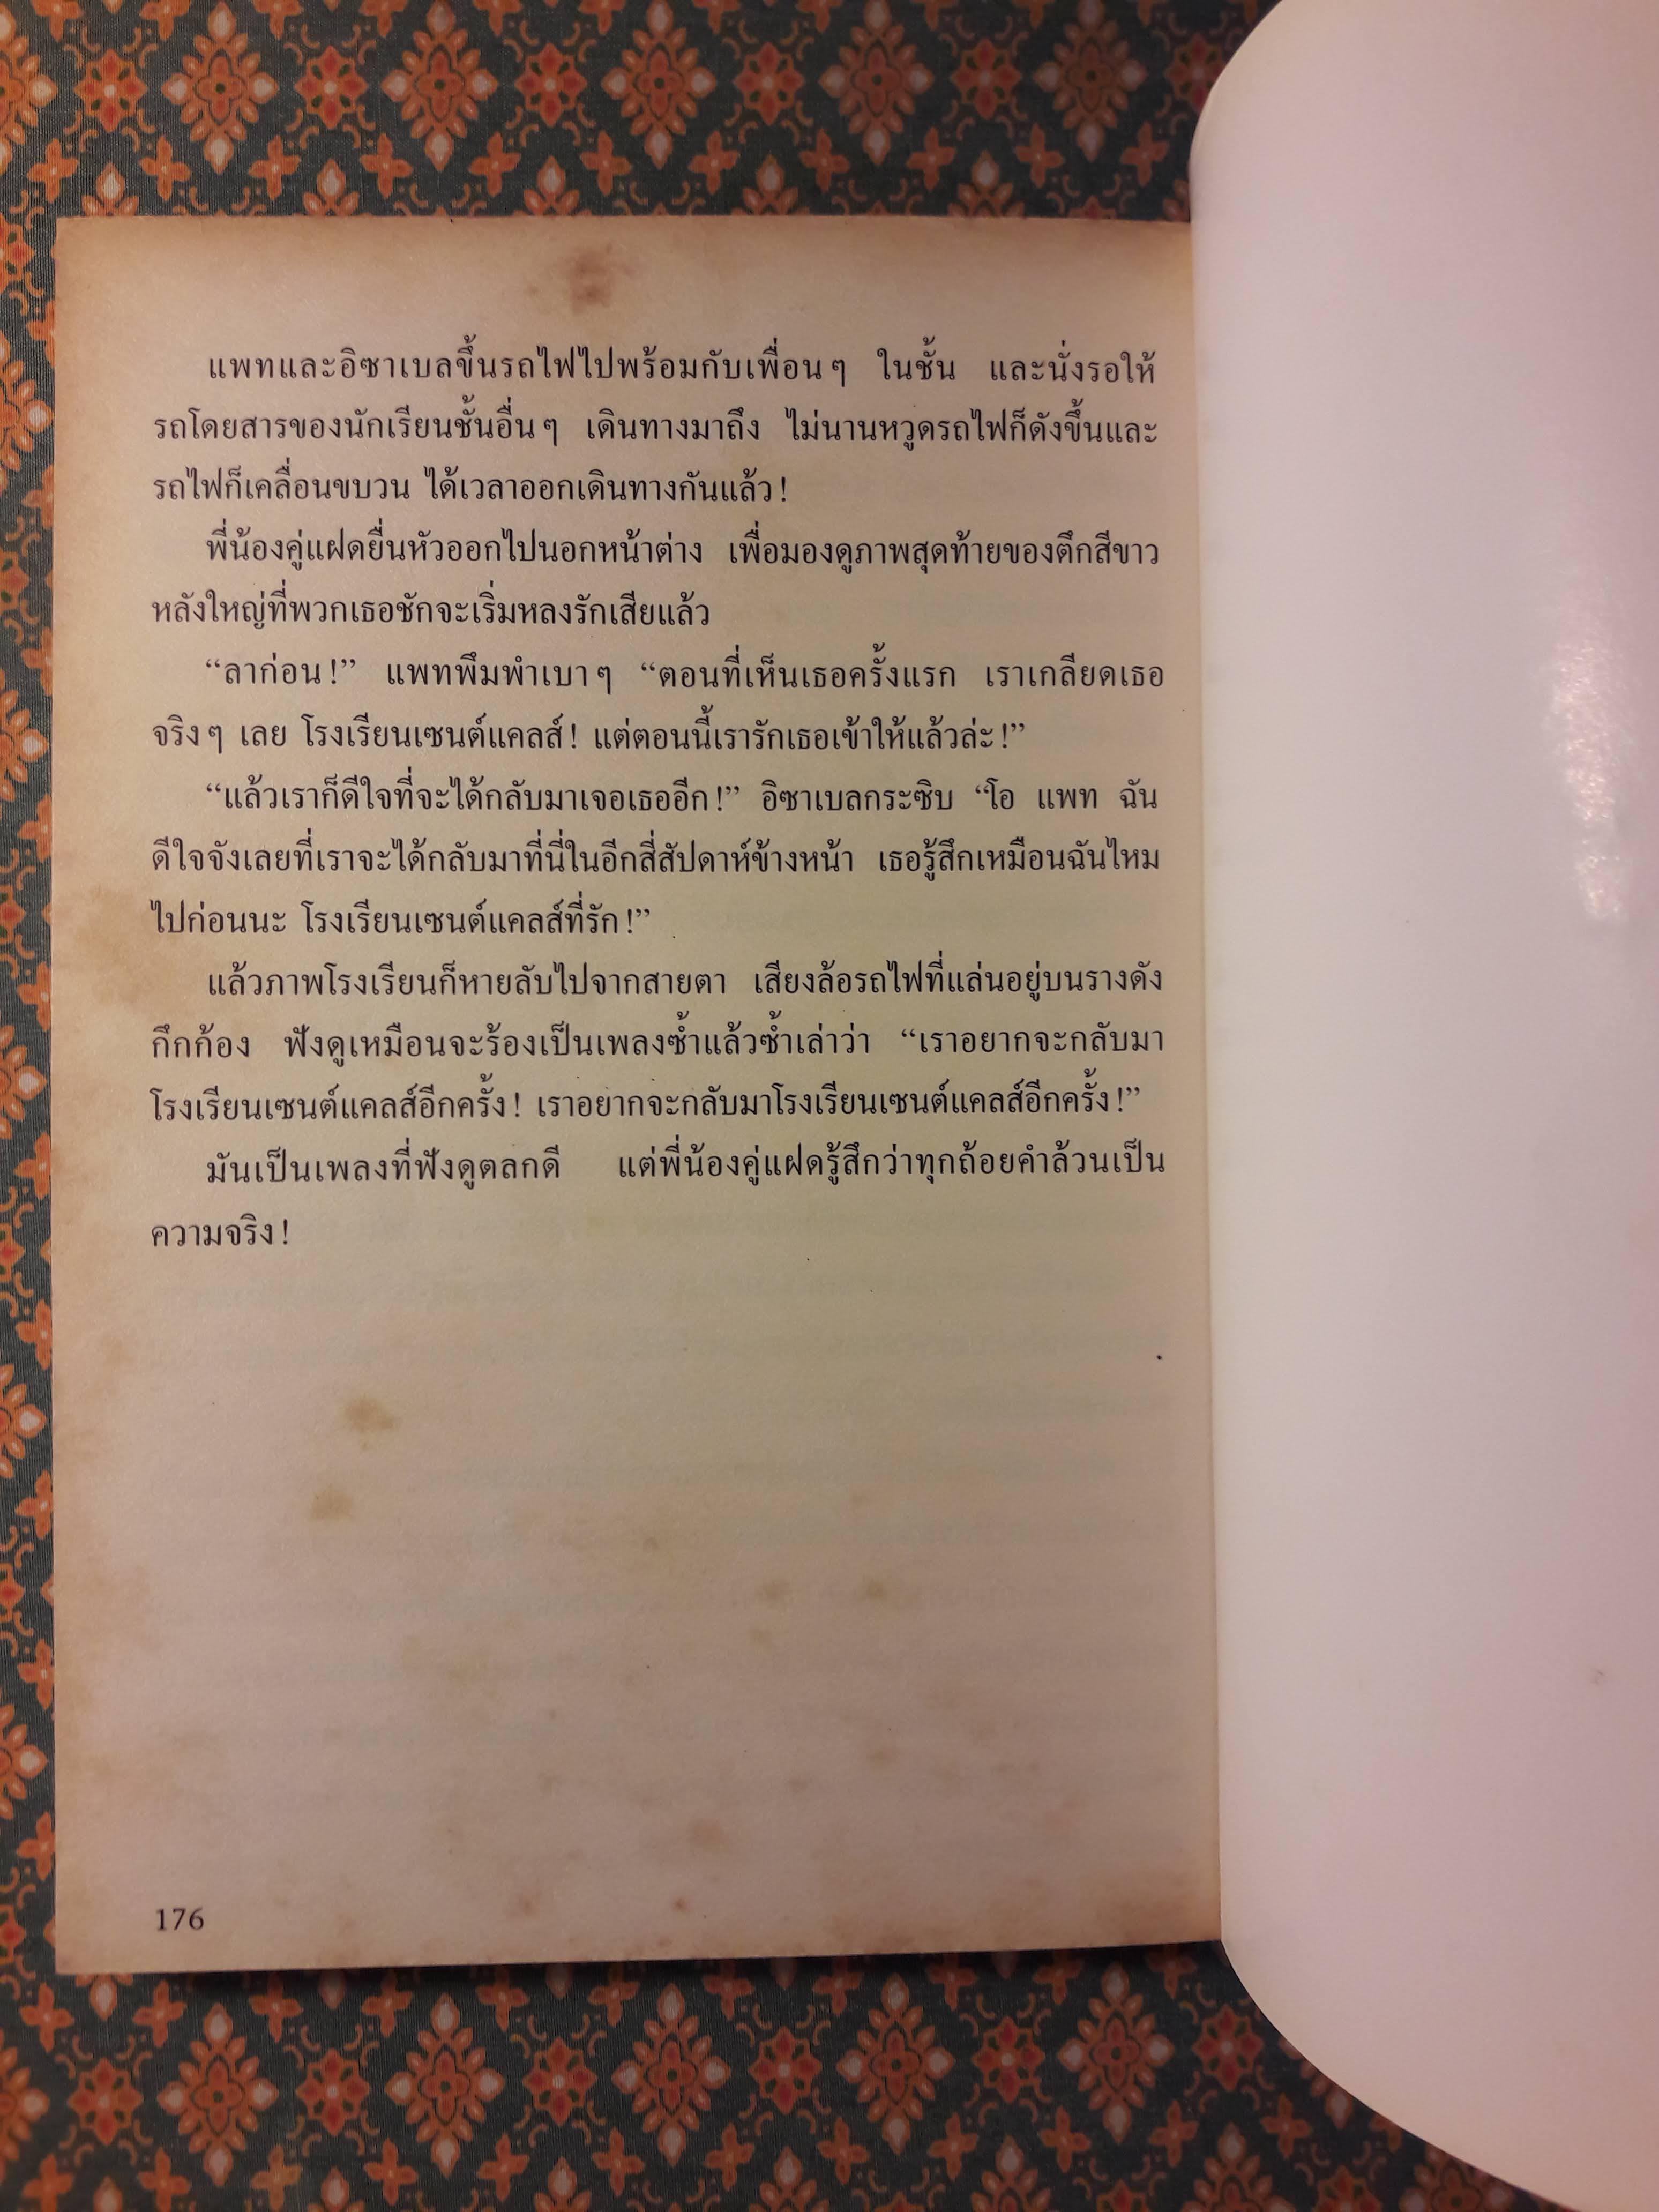 แพทและอิซาเบลขึ้นรถไฟไปพร้อมกับเพื่อนๆ ในชั้น และนั่งรอให้
รถโดยสารของนักเรียนชั้นอื่นๆ เดินทางมาถึง ไม่นานหวูดรถไฟก็ดังขึ้นและ
รถไฟก็เคลื่อนขบวน ได้เวลาออกเดินทางกันแล้ว!
พี่น้องคู่แฝดยื่นหัวออกไปนอกหน้าต่าง เพื่อมองดูภาพสุดท้ายของตึกสีขาว
หลังใหญ่ที่พวกเธอชักจะเริ่มหลงรักเสียแล้ว
“ลาก่อน!” แพทพึมพำเบาๆ “ตอนที่เห็นเธอครั้งแรก เราเกลียดเธอ
จริงๆ เลย โรงเรียนเซนต์แคลส์! แต่ตอนนี้เรารักเธอเข้าให้แล้วล่ะ!”
“แล้วเราก็ดีใจที่จะได้กลับมาเจอเธออีก!” อิซาเบลกระซิบ “โอ แพท ฉัน
ดีใจจังเลยที่เราจะได้กลับมาที่นี่ในอีกสี่สัปดาห์ข้างหน้า เธอรู้สึกเหมือนฉันไหม
ไปก่อนนะ โรงเรียนเซนต์แคลส์ที่รัก!”
แล้วภาพโรงเรียนก็หายลับไปจากสายตา เสียงล้อรถไฟที่แล่นอยู่บนรางดัง
กึกก้อง ฟังดูเหมือนจะร้องเป็นเพลงซ้ำแล้วซ้ำเล่าว่า “เราอยากจะกลับมา
โรงเรียนเซนต์แคลส์อีกครั้ง! เราอยากจะกลับมาโรงเรียนเซนต์แคลส์อีกครั้ง!”
มันเป็นเพลงที่ฟังดูตลกดี แต่พี่น้องคู่แฝดรู้สึกว่าทุกถ้อยคำล้วนเป็น
ความจริง!
176